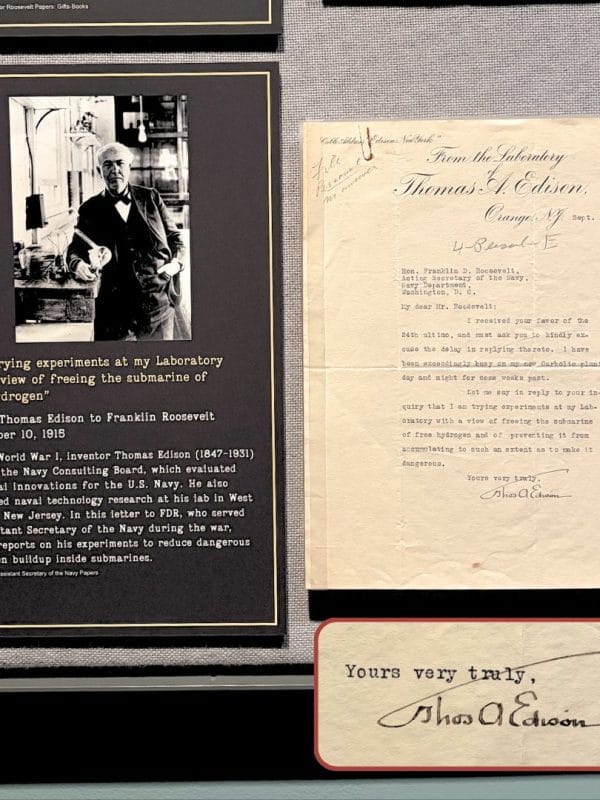 or Roosevelt Papers: Gifts-Books
rying experiments at my Laboratory
view of freeing the submarine of
ydrogen"
Thomas Edison to Franklin Roosevelt
ber 10, 1915
World War I, inventor Thomas Edison (1847-1931)
the Navy Consulting Board, which evaluated
al innovations for the U.S. Navy. He also
ed naval technology research at his lab in West
New Jersey. In this letter to FDR, who served
tant Secretary of the Navy during the war,
reports on his experiments to reduce dangerous
en buildup inside submarines.
ssistant Secretary of the Navy Papers
"Edison, New York"
From the Laboratory
of
Thomas A. Edison,
Orange, N.J. Sept.
File
Personal
no answer
Hon. Franklin D. Roosevelt,
Acting Secretary of the Navy,
Navy Department,
Washington, D. C.
My dear Mr. Roosevelt:
I received your favor of the
24th ultimo, and must ask you to kindly ex-
cuse the delay in replying thereto. I have
been exceedingly busy on my new Carbolic plant
day and night for some weeks past.
Let me say in reply to your in-
quiry that I am trying experiments at my Lab-
oratory with a view of freeing the submarine
of free hydrogen and of preventing it from
accumulating to such an extent as to make it
dangerous.
Yours very truly,
Thos A Edison
Yours very truly,
Thos A Edison